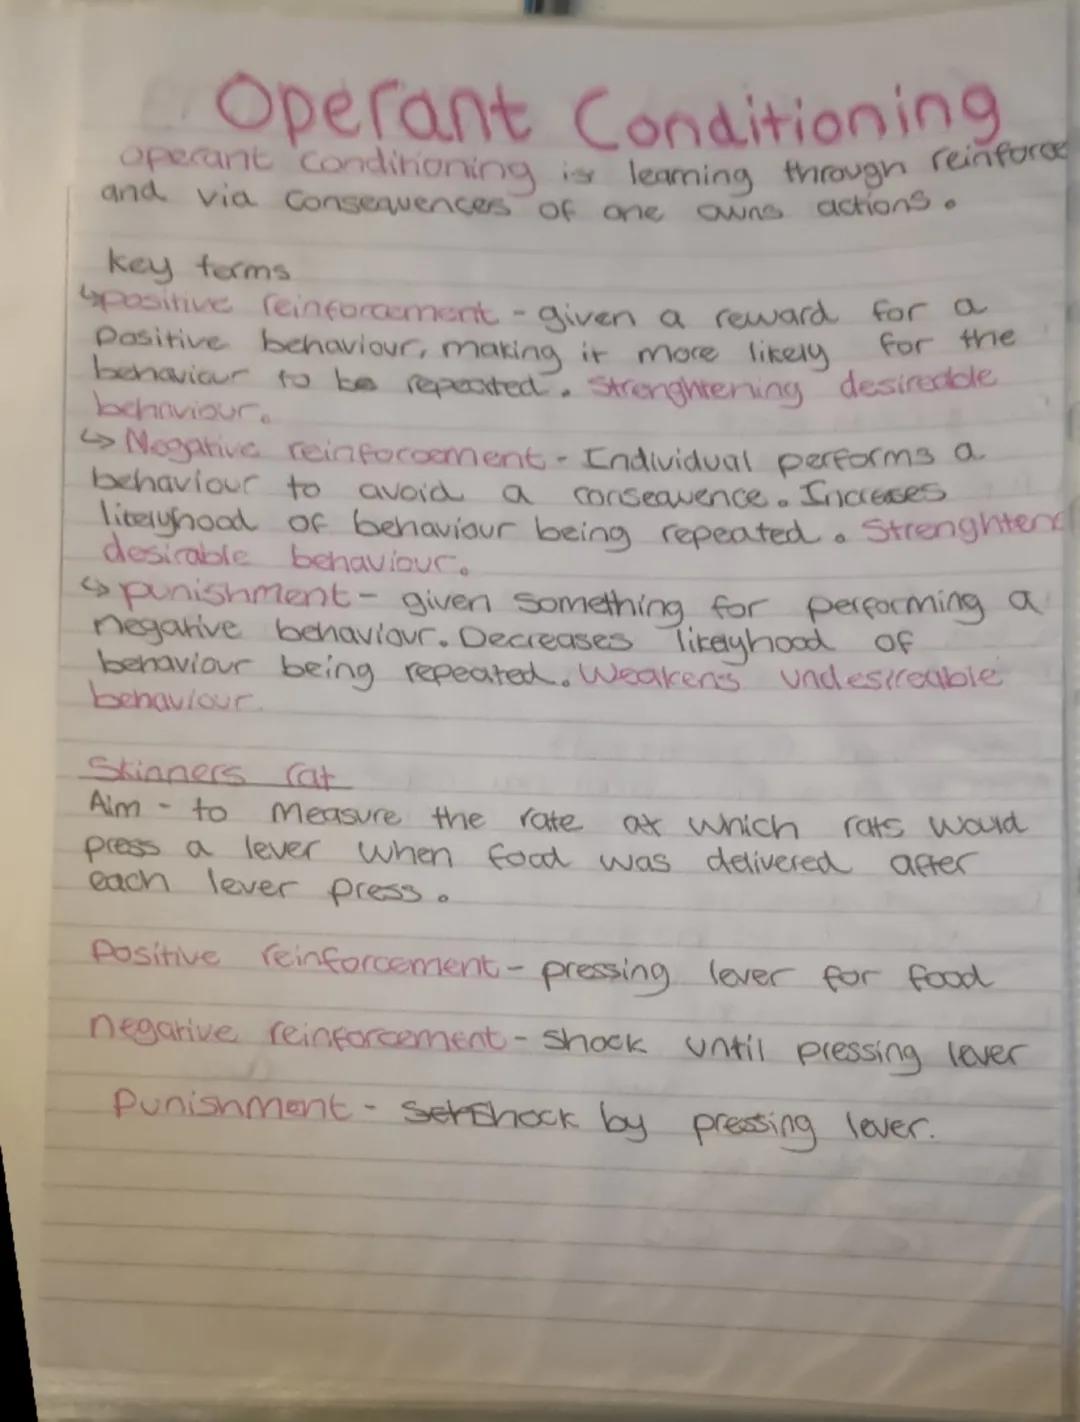 Operant Conditioning
Operant Conditioning is learning through reinforce
and via Consequences of one owns actions.
key terms
↳positive reinforcement - given a reward for a
Positive behaviour, making it more likely for the
behaviour to be repeated. Strenghtening desireable
behaviour.
↳ Negative reinforcement - Individual performs a
behaviour to avoid a consequence. Increases
likelyhood of behaviour being repeated. Strenghtens
desirable behaviour.
↳ punishment - given something for performing a
negative behaviour. Decreases likelyhood of
behaviour being repeated. Weakens undesireable
behaviour.
Skinners rat
Aim - to measure the rate at which rats would
press a lever when food was delivered after
each lever press.
Positive reinforcement - pressing lever for food
negative reinforcement - shock until pressing lever
Punishment - shock by pressing lever.